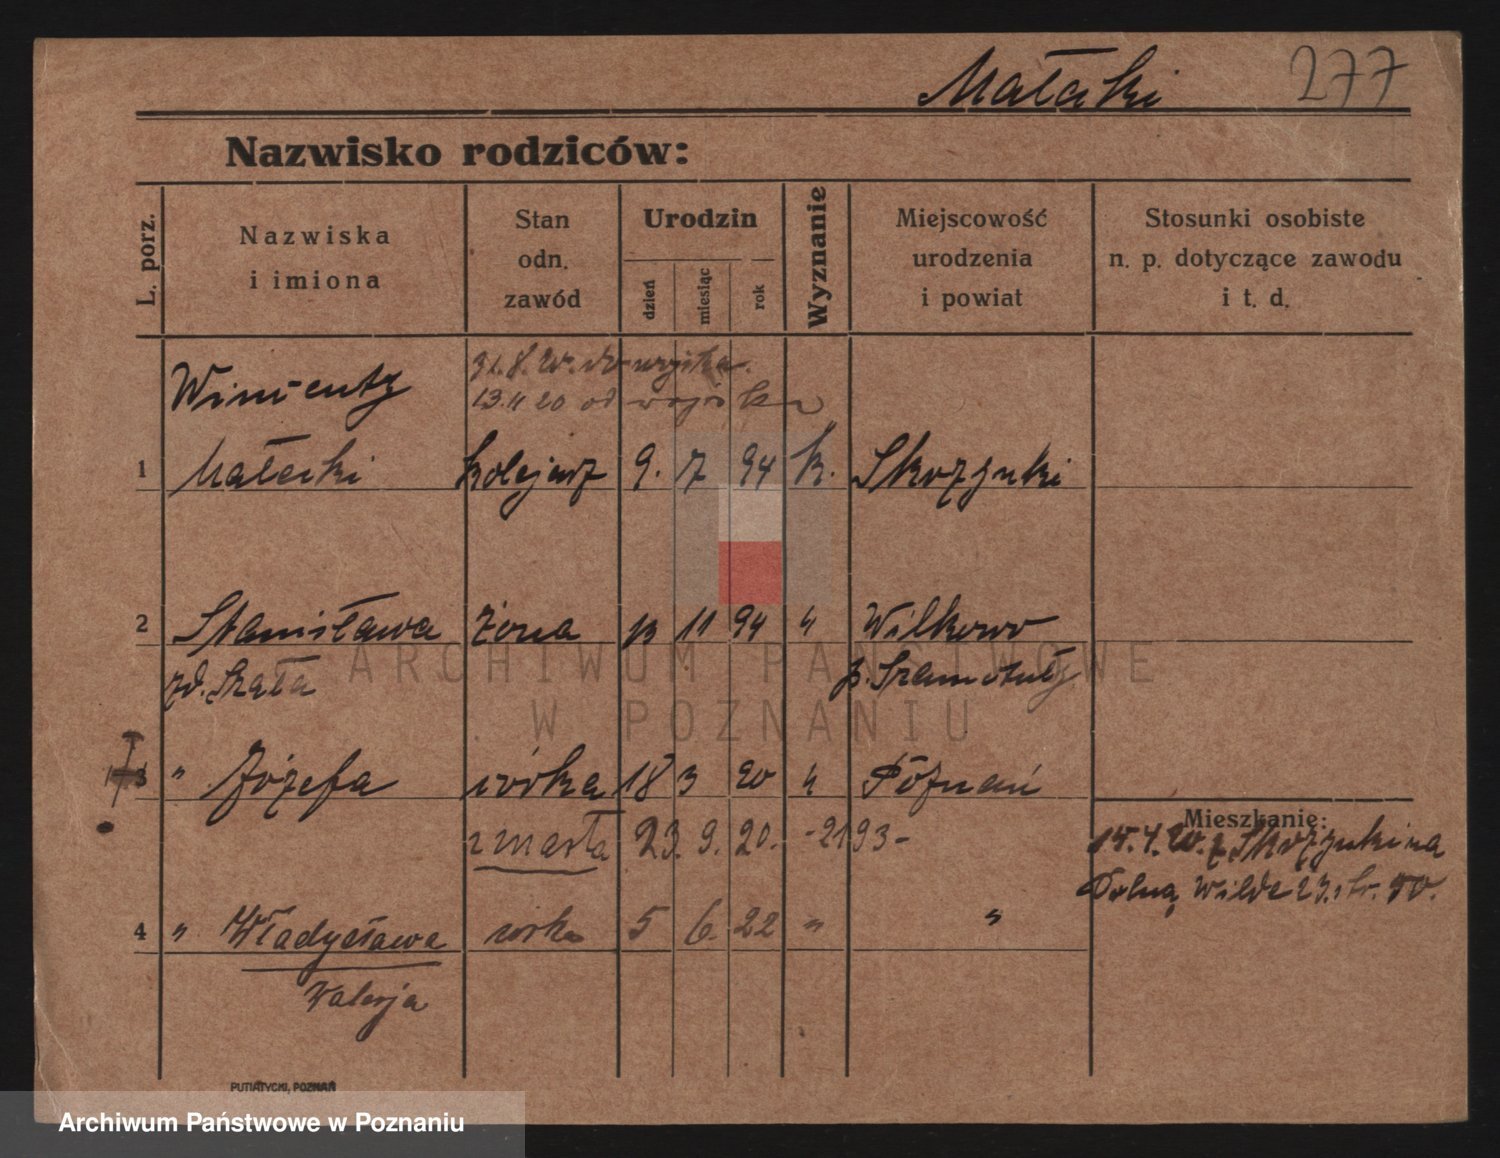 Małecki 277
Nazwisko rodziców:
L. porz.
Nazwiska
i imiona
Stan
odn.
zawód
Urodzin
dzień
miesiąc
rok
Wyznanie
Miejscowość
urodzenia
i powiat
Stosunki osobiste
n. p. dotyczące zawodu
i t. d.
31.8.20. do wojska.
Wincenty
13.11 20 od wojska
1 Małecki kolejarz 9. 7 94 k. Skorzynki
2 Stanisława żona 13 11 94 " Wilkowo
zd. Szała p. Szamotuły
3 " Józefa córka 18 3 20 " Poznań
Mieszkanie:
zmarła 23. 9. 20. -2193-
15.4.20. z Skorzynki na
Dolną Wildę 23.
4 " Władysława córka 5 6. 22 " "
Walerja
PUTIATYCKI, POZNAŃ
ARCHIWUM PAŃSTWOWE
W POZNANIU
Archiwum Państwowe w Poznaniu